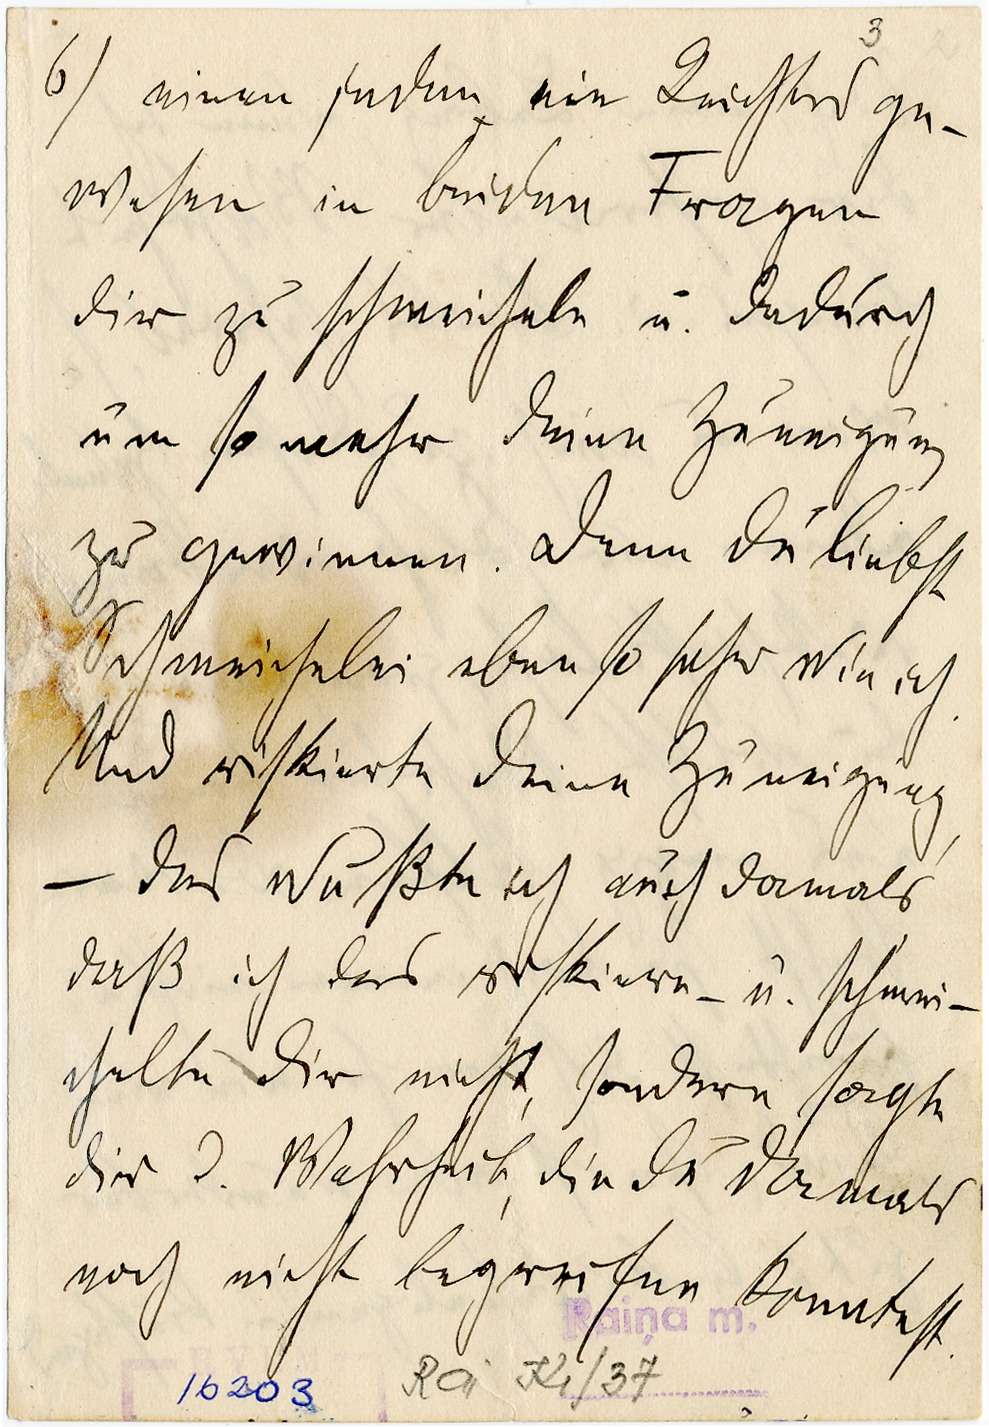 3
6) einen jeden ein Leichtes ge-
wesen in beiden Fragen
dir zu schmeicheln u. dadurch
um so mehr deine Zuneigung
zu gewinnen. Denn du liebst
Schmeichelei eben so sehr wie ich.
Und riskierte deine Zuneigung,
— das wußte ich auch damals
daß ich das riskiere – u. schmei-
chelte dir nicht, sondern sagte
dir d. Wahrheit, die du damals
noch nicht begreifen konntest.
Raiņa m.
16203 RA Ki/37